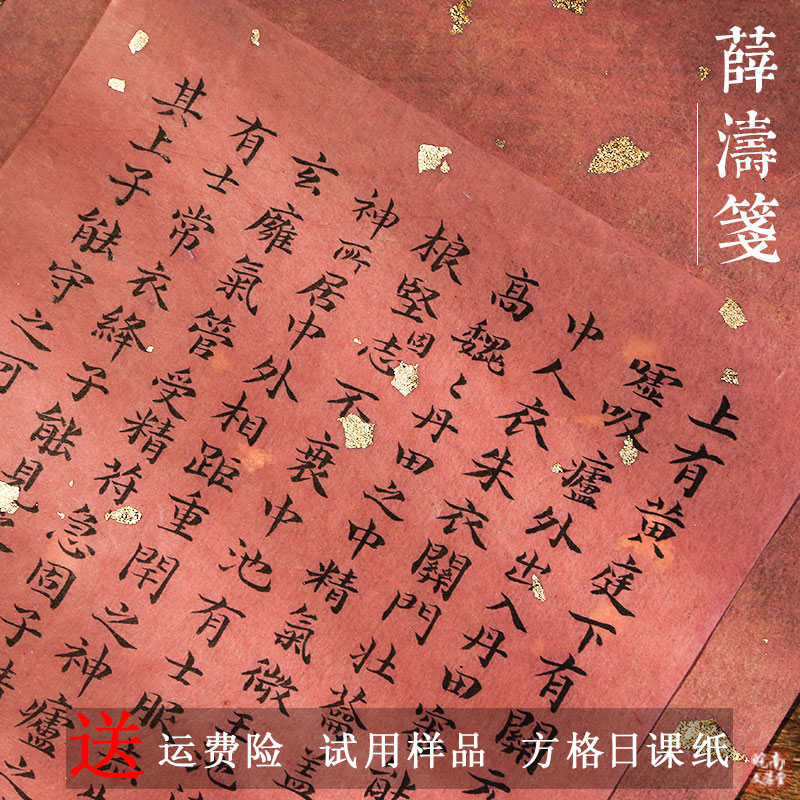 薛濤箋
上有黄庭下有關元
嘘吸廬外出入丹田審能
中人衣朱衣關門壯蘥蓋
高魏〻丹田之中精氣微玉
根堅固志不衰中池有士服
神所居中外相距重閇之神廬之
玄膺氣管受精符急固子精
有士常衣絳子能見
其上子能守之可
送 运费险 试用样品 方格日课纸